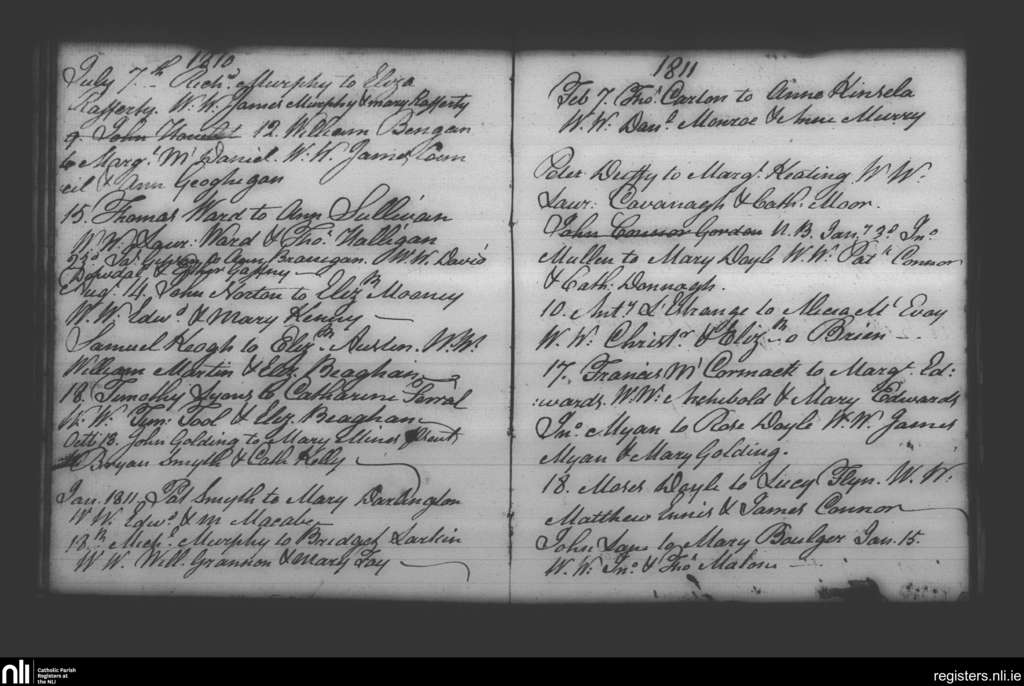 1810
July 7th Richd Murphy to Eliza
Rafferty. W.W. James Murphy & Mary Rafferty
9. John 12. William Bengan
to Margt Mc Daniel. W.W. James Coun
cil & Ann Geoghegan
15. Thomas Ward to Ann Sullivan
W.W. Laur: Ward & Thos Halligan
23d to Ann Branigan. W.W. David
& Esther Gaffney
Aug. 14. John Norton to Elizth Mooney
W.W. Edwd & Mary Kenny
Samuel Keogh to Elizth Austen. W.W.
William Martin & Eliz. Beaghan
18. Timothy Lyons to Catharine Farral
W.W. Tym: Tool & Eliz. Beaghan
Octr 13. John Golding to Mary Mines
Bryan Smyth & Cath Kelly
Jan. 1811. Pat Smyth to Mary Darlington
W.W. Edwd & M Macabe
13th Michl Murphy to Bridget Larkin
W.W. Will. Grannon & Mary Fay
1811
Feb 7. Thos Carton to Anne Kinsela
W.W. Danl Monroe & Anne Murry
Peter Duffy to Margt Keating W.W.
Laur: Cavanagh & Cath: Moor.
John Connor Gordon N.B. Jany 23d Jno
Mullen to Mary Doyle W.W. Patk Connor
& Cath: Donnagh.
10. Anty L'Estrange to Alicia Mc Evoy
W.W. Christr & Elizth o Brien
17. Francis Mc Cormack to Margt Ed:
:wards. W.W. Archibold & Mary Edwards
Jno Myan to Rose Doyle W.W. James
Myan & Mary Golding.
18. Moses Doyle to Lucy Flyn. W.W.
Matthew Ennis & James Connor
John to Mary Boulger Jan. 15.
W.W. Jno & Thos Malone
nli
Catholic Parish
Registers at
the NLI
registers.nli.ie